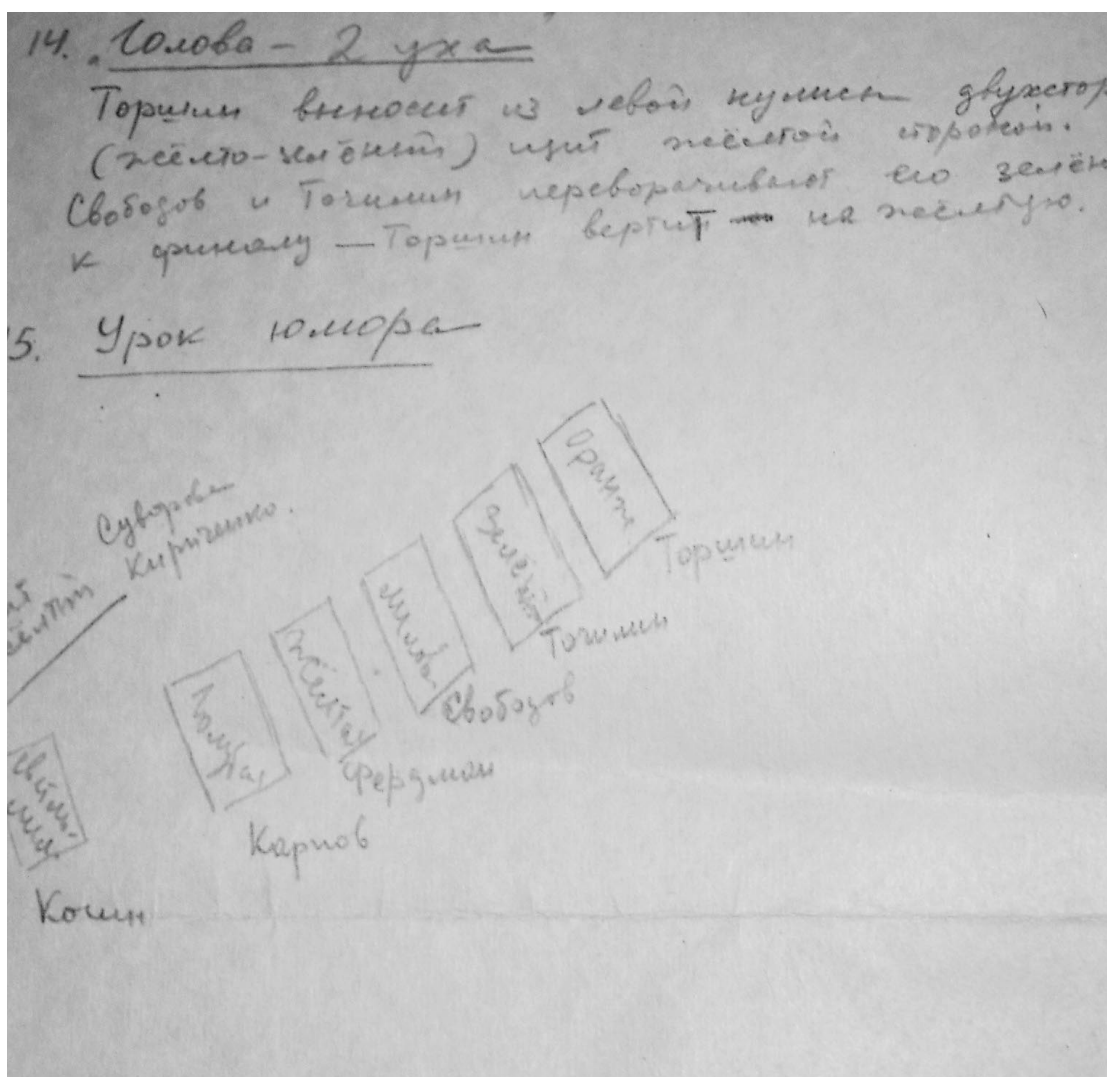 14. „Голова – 2 уха
Торшин выносит из левой кулисы двухстор
(жёлто-зелёный) щит жёлтой стороной.
Свободов и Точилин переворачивают его зелён
к финалу — Торшин вертит на жёлтую.
5. Урок юмора
Оранж
Торшин
Зелёный
Точилин
Свободов
Жёлтая
Фердман
Карпов
Суворова
Кириченко.
Кочин